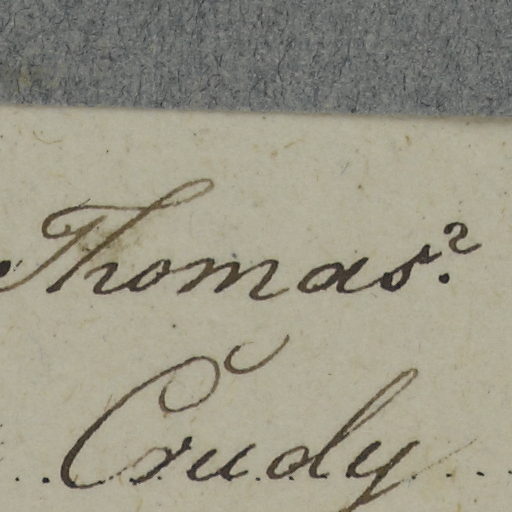 Thomas?
Crudy